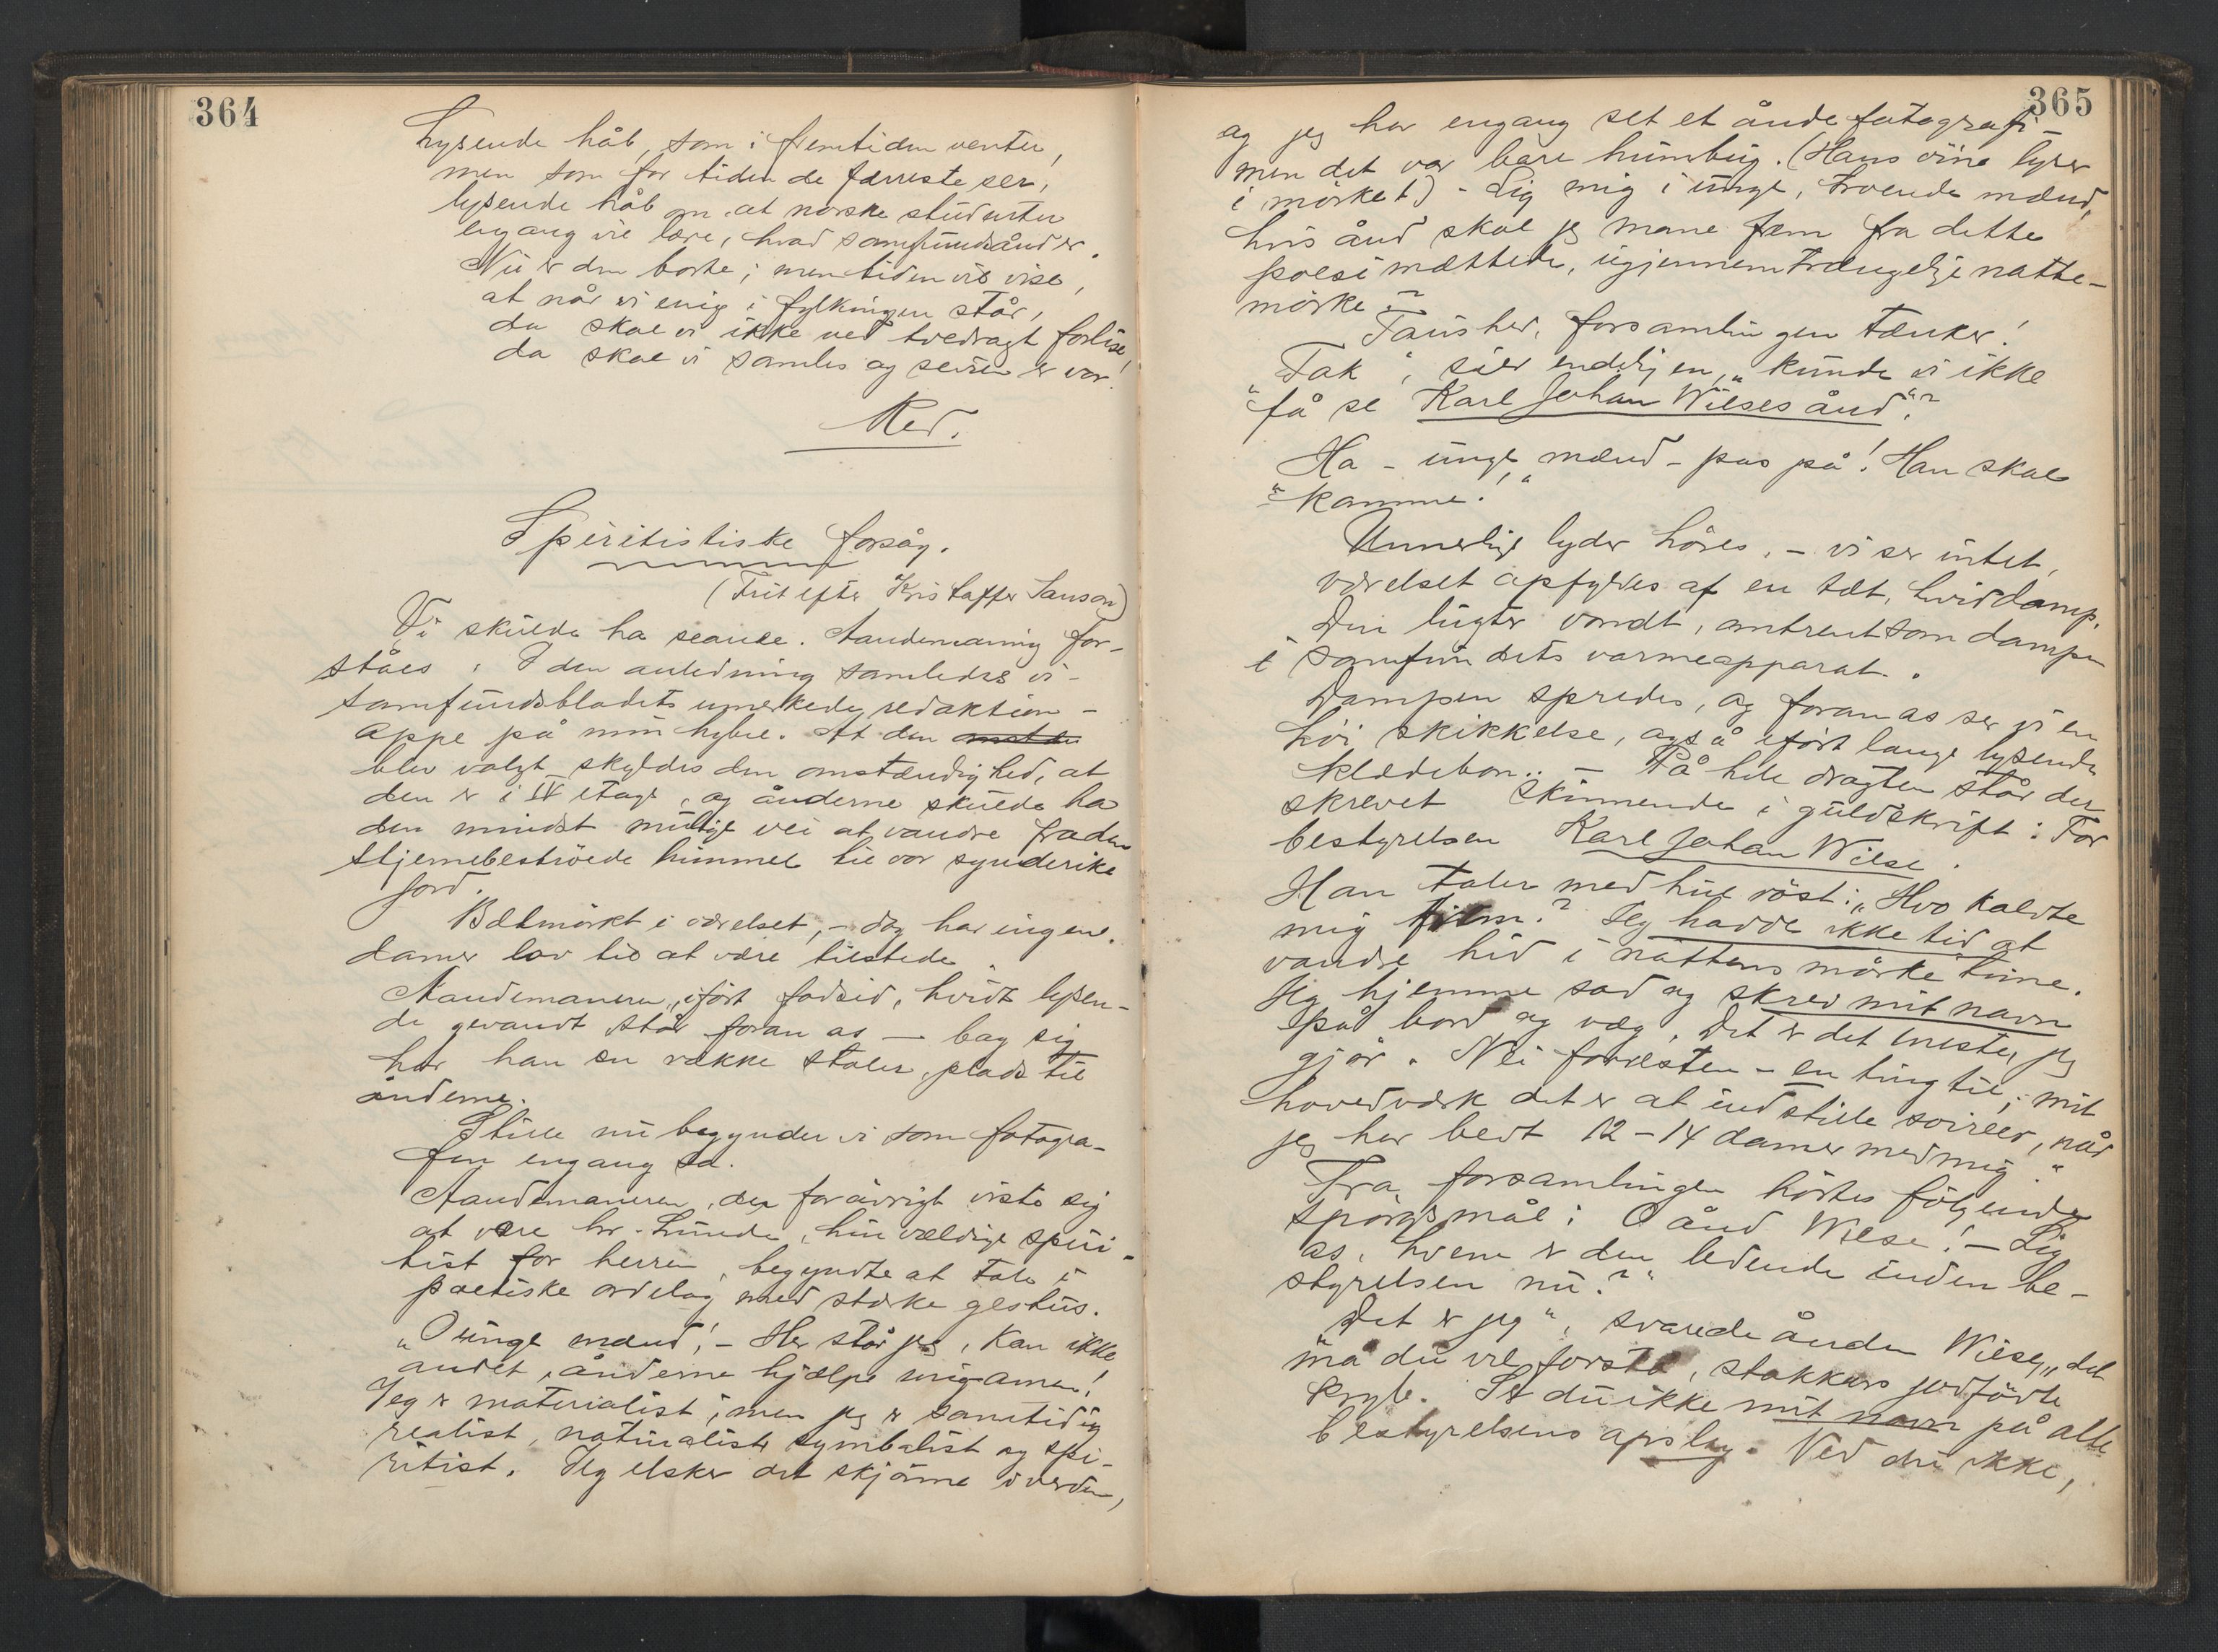 364
Lysende håb, som i fremtiden venter,
men som for tiden de færreste ser,
lysende håb om at norske studenter
engang vil lære, hvad samfundsånd er.
Nu er den borte; men tiden vil vise,
at når vi enig i fylkingen står,
da skal vi ikke ved tvedragt forlise!
da skal vi samles og seiren er vor!
Red.
Spiritistiske forsøg.
(Frit efter Kristoffer Janson)
Vi skulde ha seance. Aandemaning for-
ståes. I den anledning samledes vi -
samfundsbladets umerkede redaktion -
oppe på min hybel. At den
blev valgt skyldes den omstændighed, at
den er i IV etage, og ånderne skulde ha
den mindst mulige vei at vandre fra den
stjernebestrøede himmel til vor synderike
jord.
Bælmørkt i værelset, - dog har ingen
damer lov til at være tilstede.
Aandemaneren, iført fodsid, hvidt lysen-
de gevandt står foran os - bag sig
har han en række stoler, plads til
ånderne.
Stille nu begynder vi som fotogra-
fen engang sa.
Aandemaneren, der forøvrigt viste sig
at være hr. Lunde, hin vældige spiri-
tist for herren, begyndte at tale i
poetiske ordelag med stærke gestus.
"O unge mænd! - Her står jeg, kan ikke
andet, ånderne hjælpe mig amen!
Jeg er materialist; men jeg er samtidig
realist, naturalist symbolist og spi-
ritist. Jeg elsker det skjønne i verden,
365
og jeg har engang set et åndefotografi -
men det var bare humbug. (Hans øine lyser
i mørket) - Sig mig i unge, troende mænd,
hvis ånd skal jeg mane frem fra dette
poesimættede, ugjennemtrængelige natte-
mørke?"
Taushed, forsamlingen tænker!
"Tak", sier endelig en, "kunde vi ikke
få se Karl Johan Wilses ånd"?
"Ha - unge mænd - pas på! Han skal
komme!"
Underlige lyder høres, - vi ser intet,
værelset opfyldes af en tæt, hvid damp.
Den lugter vondt, omtrent som dampen
i samfundets varmeapparat.
Dampen spredes, og foran os ser vi en
høi skikkelse, også iført lange lysende
klædebon. - På hele dragten står der
skrevet skinnende i guldskrift: For
bestyrelsen Karl Johan Wilse.
Han taler med hul røst: "Hvo kaldte
mig frem? Jeg havde ikke tid at
vandre hid i nattens mørke time.
Jeg hjemme sad og skrev mit navn
på bord og væg. Det er det meste jeg
gjør. Nei forresten - en ting til; mit
hovedværk det er at indstille soireer, når
jeg har bedt 12-14 damer med mig."
Fra forsamlingen hørtes følgende
spørgsmål: O ånd Wilse! - Sig
os, hvem er den ledende inden be-
styrelsen nu?"
"Det er jeg", svarede ånden Wilse, "det
må du vel forstå, stakkars jordfødte
kryb. Ser du ikke mit navn på alle
bestyrelsens opslag. Ved du ikke,